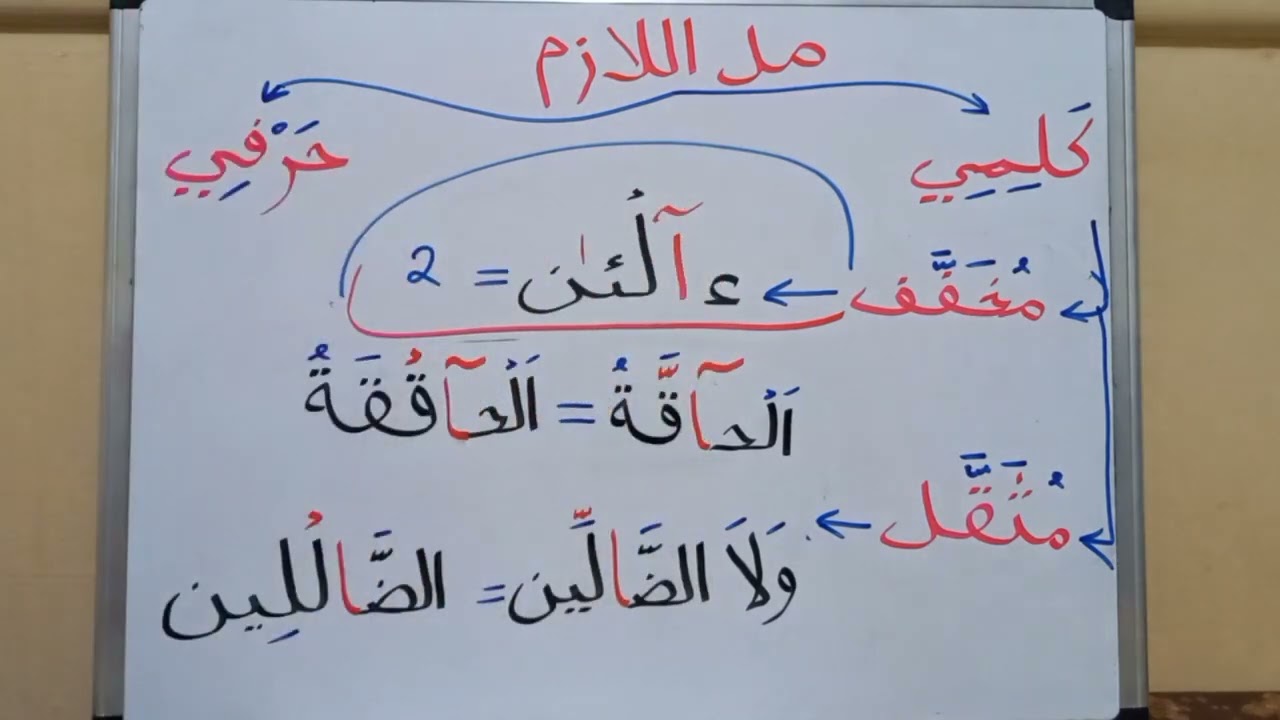 مد اللازم
كَلِمِي حَرْفِي
مُخَفَّف ← ءآلْئٰن = 2
اَلْحآقَّةُ = اَلْحآقْقَةُ
مُثَقَّل ← وَلاَ الضَّالِّين = الضَّالْلِين